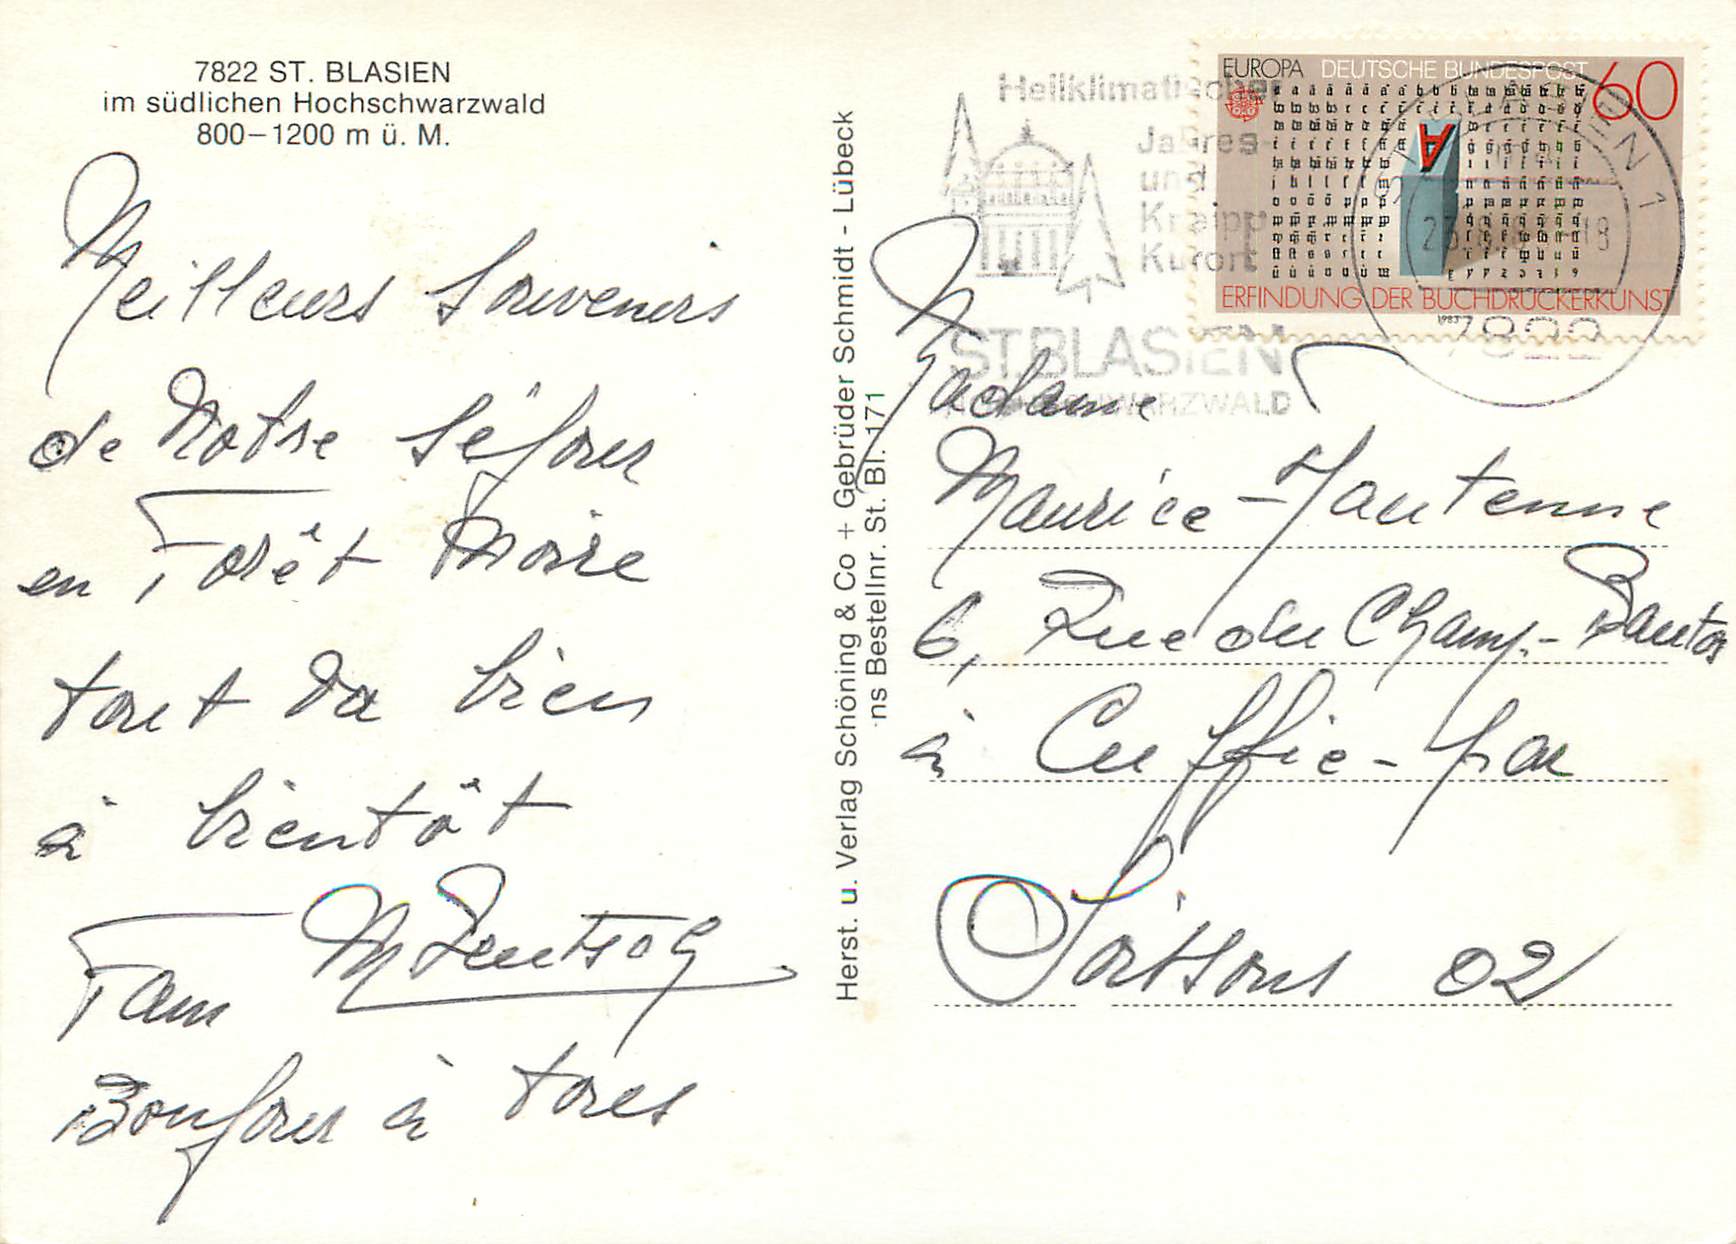 7822 ST. BLASIEN
im südlichen Hochschwarzwald
800–1200 m ü. M.
Meilleurs Souvenirs
de Notre Séjour
en Forêt Noire
tout va bien
à bientôt
Fam
Bonjour à tous
Herst. u. Verlag Schöning & Co + Gebrüder Schmidt - Lübeck
ns Bestellnr. St. Bl. 171
Heilklimatischer
Jahres-
und
Kneipp
Kurort
ST. BLASIEN
HOCHSCHWARZWALD
EUROPA DEUTSCHE BUNDESPOST 60
A
ERFINDUNG DER BUCHDRUCKERKUNST
1983
ST. BLASIEN 1
7822
Madame
Maurice
6, Rue du Champ-
à Cuffie-par
Soissons 02